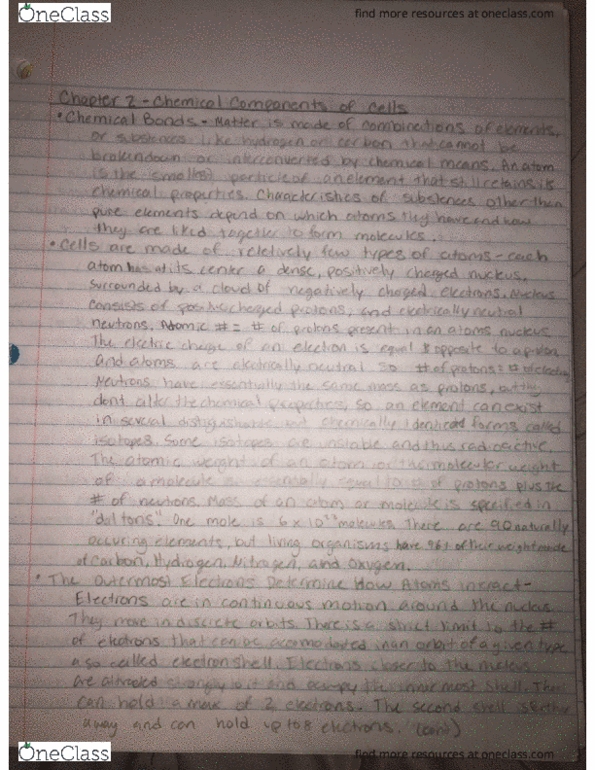 OneClass
find more resources at oneclass.com
Chapter 2 - Chemical Components of Cells
• Chemical Bonds - Matter is made of combinations of elements,
or substances like hydrogen or carbon that cannot be
broken down or interconverted by chemical means. An atom
is the smallest particle of an element that still retains its
chemical properties. Characteristics of substances other than
pure elements depend on which atoms they have and how
they are liked together to form molecules.
• Cells are made of reletively few types of atoms - each
atom has at its center a dense, positively charged nucleus,
surrounded by a cloud of negatively charged electrons. Nucleus
consists of positively charged protons, and electrically neutral
neutrons. Atomic # = # of protons present in an atoms nucleus
The electric charge of an electron is equal & opposite to a proton
and atoms are electrically neutral so # of protons = # of electrons
Neutrons have essentially the same mass as protons, but they
dont alter the chemical properties, so an element can exist
in several distinguishable but chemically identical forms called
isotopes. Some isotopes are unstable and thus radioactive.
The atomic weight of an atom or the molecular weight
of a molecule is essentially equal to # of protons plus the
# of neutrons. Mass of an atom or molecule is specified in
"daltons". One mole is 6 x 10 molecules. There are 90 naturally
occuring elements, but living organisms have 96% of their weight made
of Carbon, Hydrogen, Nitrogen, and Oxygen.
• The Outermost Electrons Determine How Atoms interact -
Electrons are in continuous motion around the nucleus
They move in discrete orbits. There is a strict limit to the #
of electrons that can be accomodated in an orbit of a given type
a so called electron shell. Electrons closer to the nucleus
are attracted strongly to it and occupy the inner most shell. This
can hold a max of 2 electrons. The second shell is farther
away and can hold up to 8 electrons. (cont)
OneClass
find more resources at oneclass.com